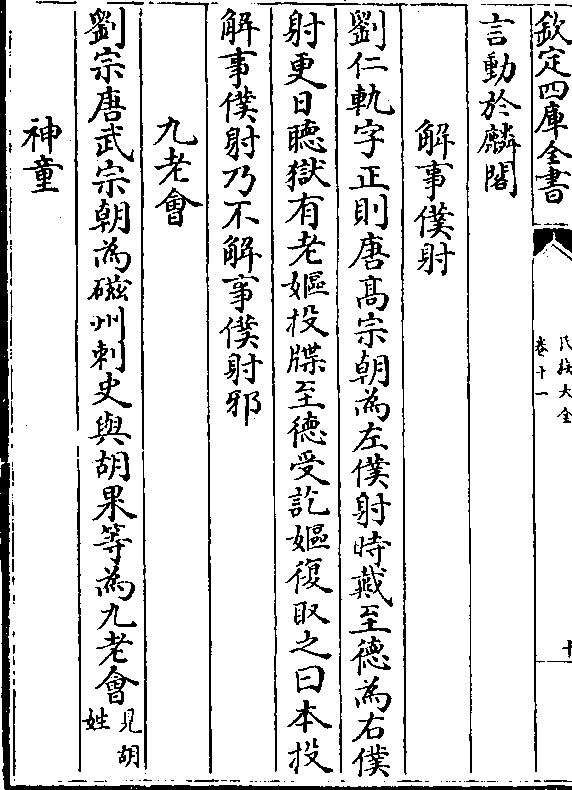 欽定四庫全書
氏族大全
卷十一
十
言動於麟閣
解事僕射
劉仁軌字正則唐髙宗朝為左僕射時戴至德為右僕
射更日聽獄有老嫗投牒至德受訖嫗復取之曰本投
解事僕射乃不解事僕射邪
九老㑹
劉宗唐武宗朝為磁州刺史與胡果等為九老㑹見胡
姓
神童